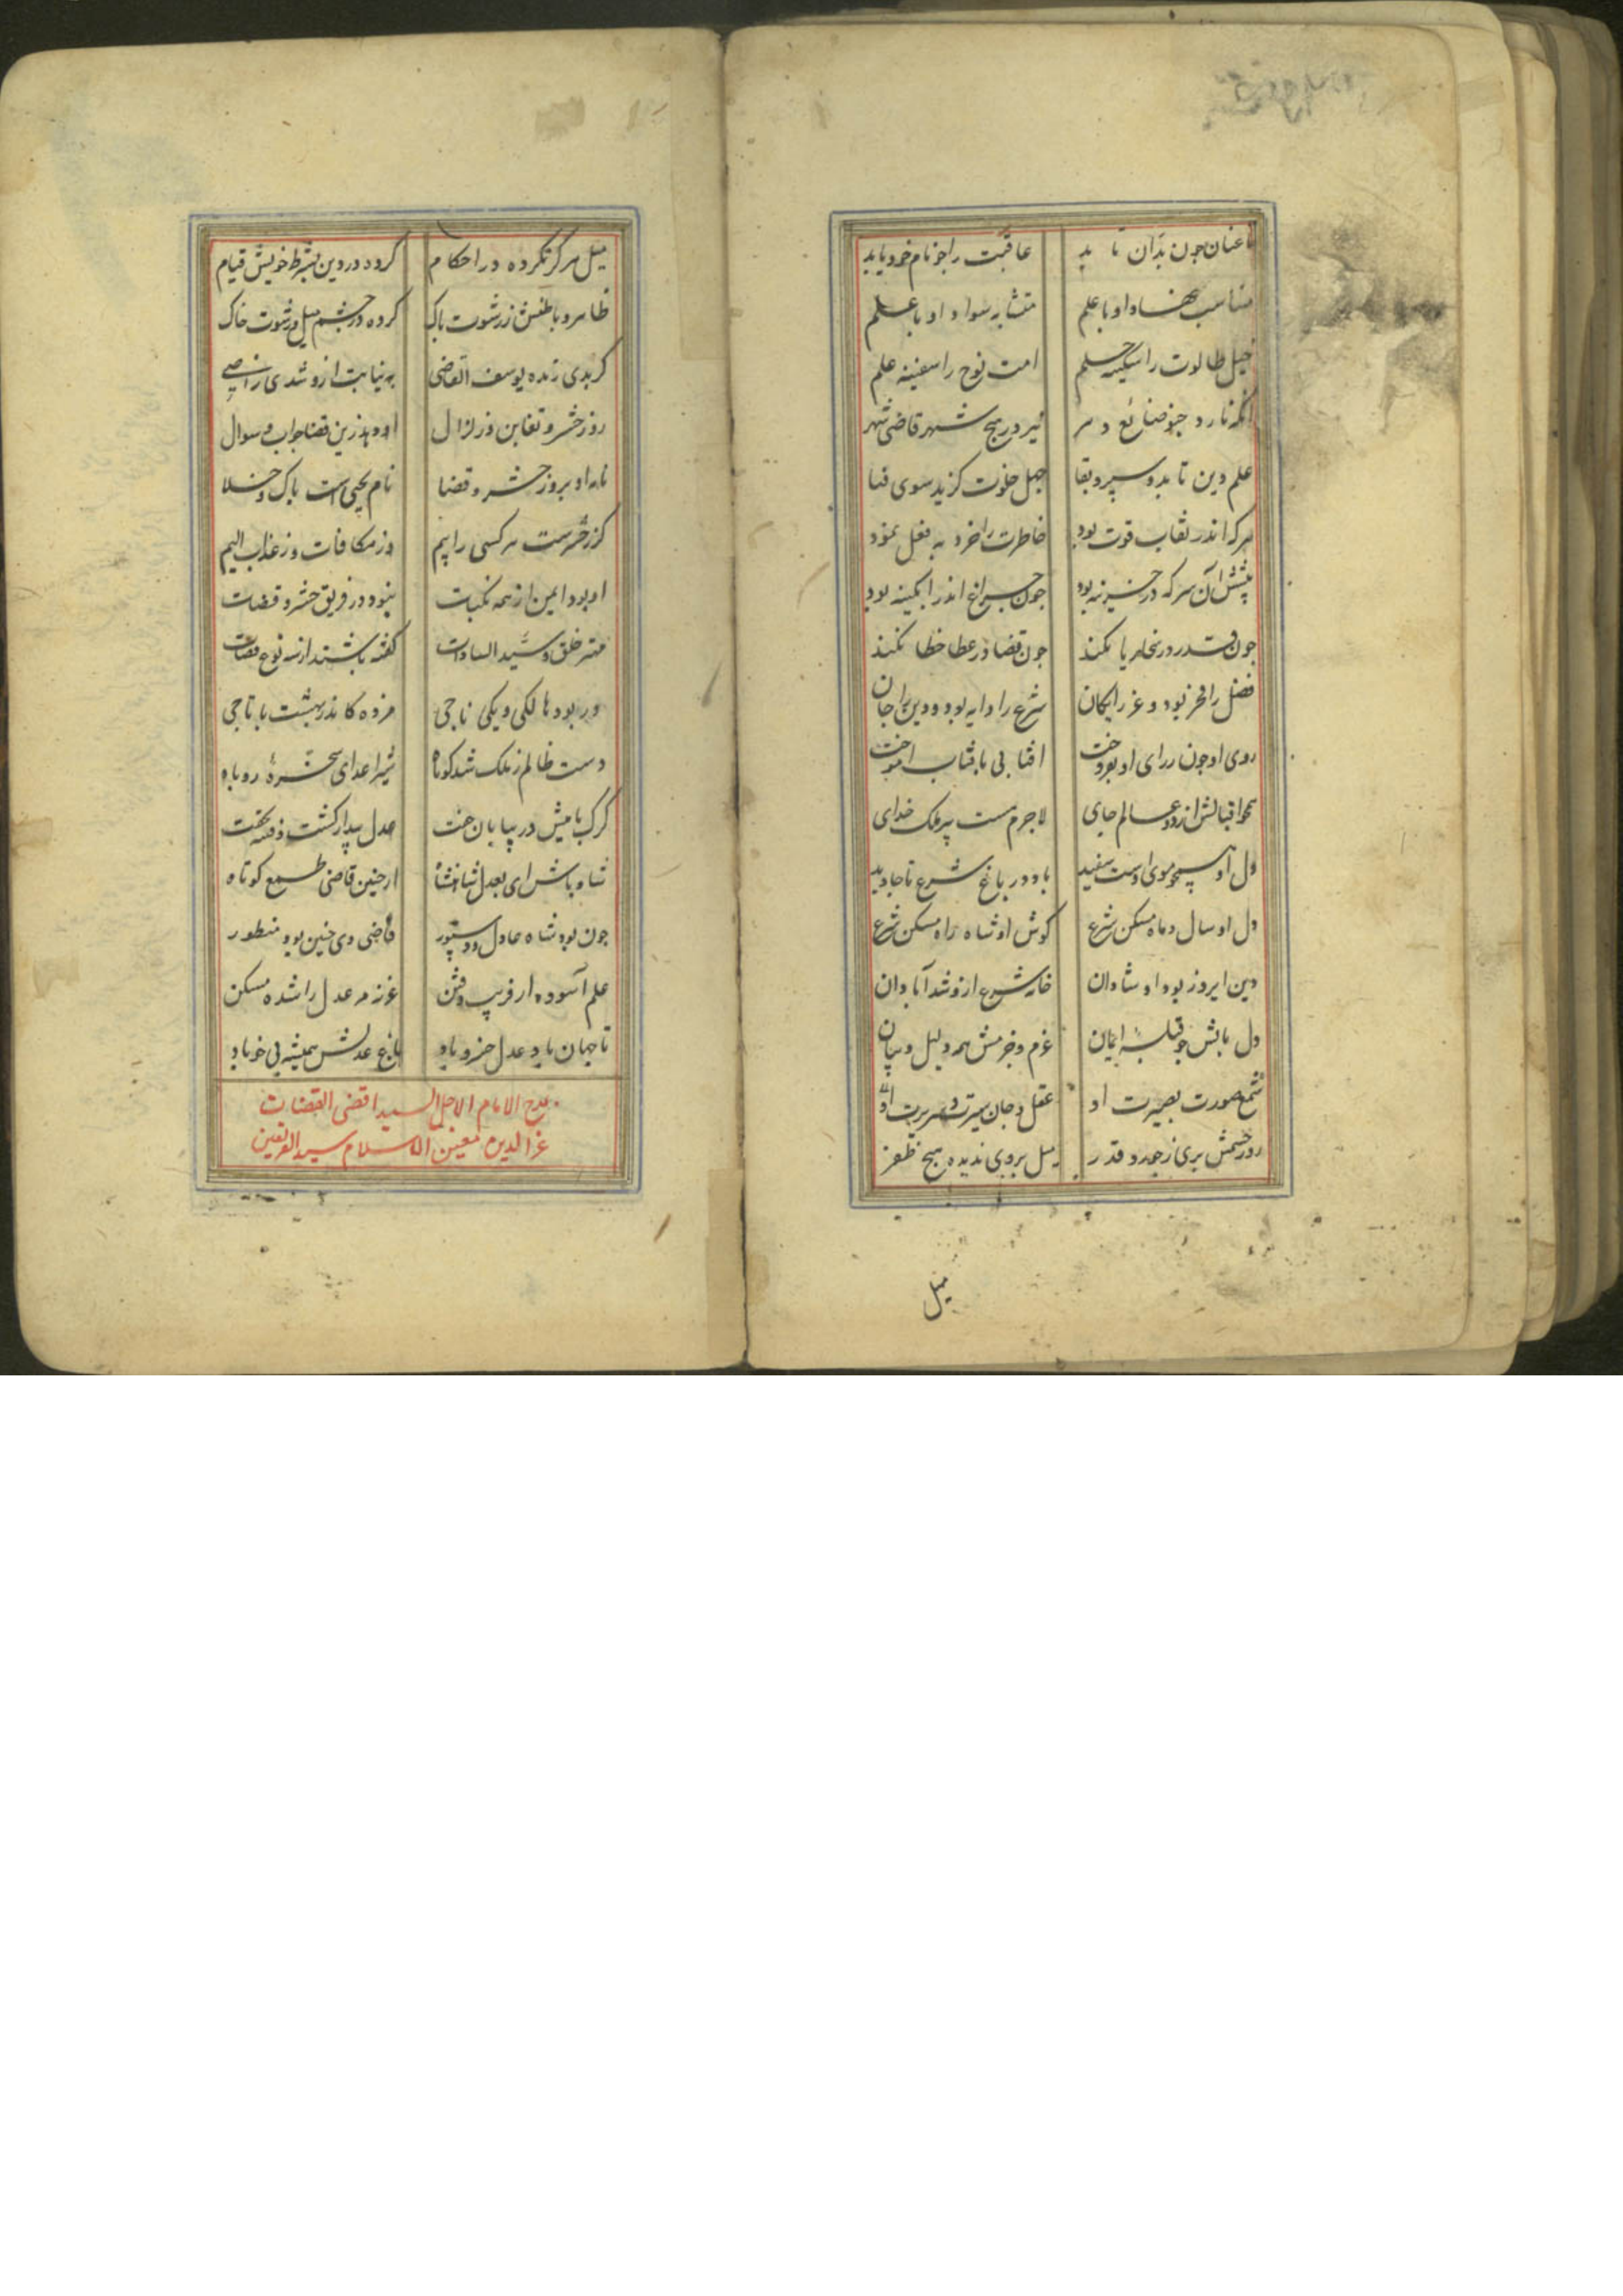 تا عنان چون بدان تا بد عاقبت را چو نام خود یابد
متناسب نهاد او با علم متشابه سواد او با علم
خیل طالوت را سکینه حلم امت نوح را سفینه علم
انکه نارد چو صانع دهر نیز در هیچ شهر قاضی شهر
علم دین تا بدو سپرد بقا جهل خلوت کزید سوی فنا
هرکه اندر نقاب قوت بود خاطرش را خرد به فعل نمود
پیشش آن سر که در خزینه بود چون چراغ اندر ابکینه بود
جون قدر در سخا ریا نکند جون قضا در عطا خطا نکند
فضل را فخر بود و عز رایکان شرع را دایه بود و دین را جان
روی او جون ز رای او بفروخت افتابی بافتاب اموخت
همه اقبالش از دو عالم جای لاجرم هست پیر ملک خدای
دل او همجو موی اوست سفید باد در باغ شرع تا جاوید
دل او سال و ماه مسکن شرع کوش او شاه راه مسکن شرع
دین ابروز بود او شادان خانه شرع ازو شد آبادان
دل باکش جو قبله ایمان عزم و حزمش همه دلیل و بیان
شمع صورت بصیرت او عقل و جان سیرت و سریرت او
روز خشمش بری ز جهد و قدر میل بر وی ندیده هیچ ظفر
میل
میل هرکز نکرده در احکام کرده در دین بشرط خویش قیام
ظاهر و باطنش ز رشوت باک کرده در جشم میل و رشوت خاک
کر بدی زنده یوسف القاضی به نیابت ازو شدی راضی
روز حشر و تغابن و زلزال او دهد زین قضا جواب و سوال
نامه او بروز حشر و قضا نام یحیی است باک و خلا
کز حشرست هر کسی را بیم وز مکافات وز عذاب الیم
او بود ایمن از همه نکبات نبود در فریق حشر و قضات
مهتر خلق و سید السادات کفته باشند از سه نوع قضات
ور بود هالکی و یکی ناجی مزده کاندر بهشت با تاجی
دست ظالم ز ملک شد کوتاه شیر اعدای سخره روباه
کرک با میش در بیابان خفت عدل بیدار کشت و فتنه بخفت
شاد باش ای بعدل شاهنشاه از جنین قاضی طمع کوتاه
جون بود شاه عادل و دستور قاضی وی جنین بود منظور
علم آسوده از فریب و فتن غزنه مر عدل را شده مسکن
تا جهان باد عدل خسرو باد باغ عدلش همیشه بی خو باد
مدح الامام الاجل السید اقضی القضات
عز الدین معین الاسلام سید الفریقین